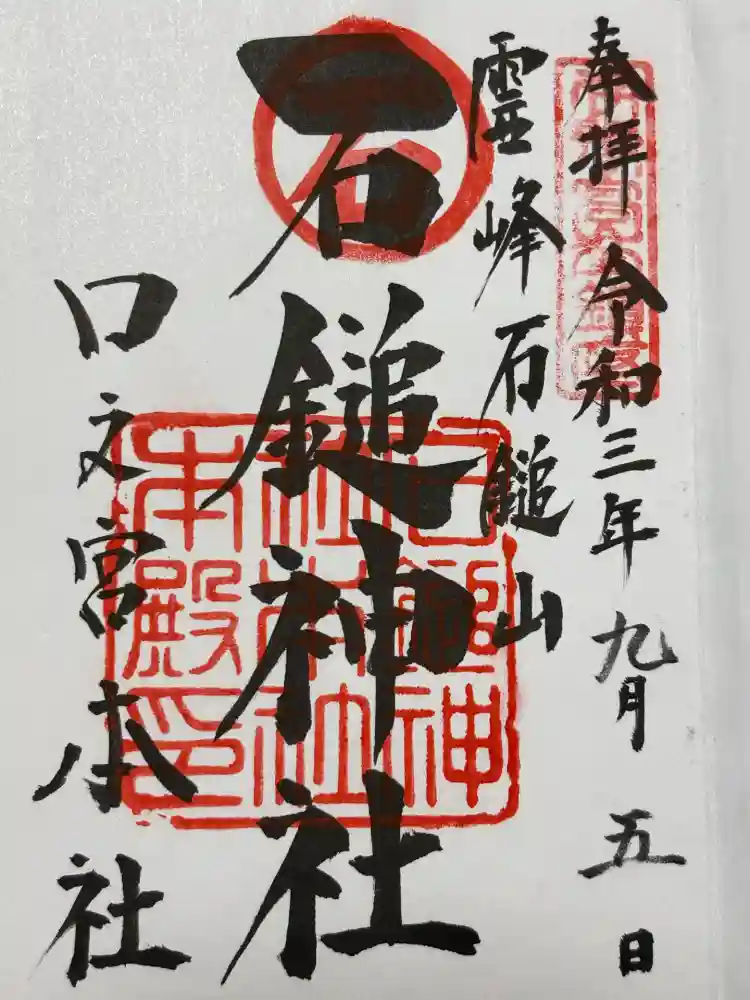 奉拝 令和三年九月五日
霊峰石鎚山
石鎚神社
口之宮本社
石
石鎚神社本社本殿印